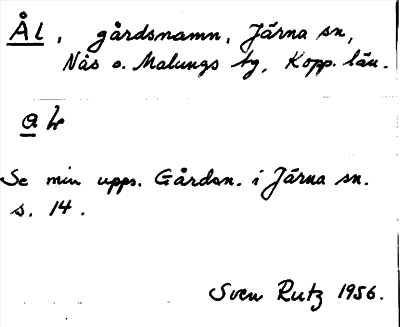 ÅL, gårdsnamn, Järna sn,
Nås o. Malungs tg, Kopp. län.
Se min upps. Gårdsn. i Järna sn.
s. 14.
Sven Rutz 1956.